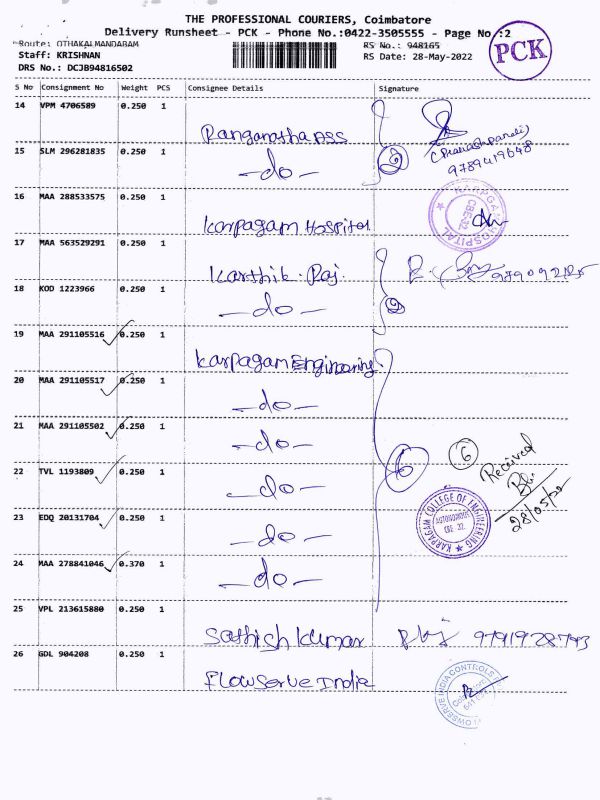 THE PROFESSIONAL COURIERS, Coimbatore
Delivery Runsheet - PCK - Phone No.:0422-3505555 - Page No.:2
PCK
Route: OTHAKALMANDABAM
RS No.: 948165
Staff: KRISHNAN
RS Date: 28-May-2022
DRS No.: DCJB94816502
S No Consignment No Weight PCS Consignee Details Signature
14 VPM 4706589 0.250 1
Ranganatha Ass
9789419648
15 SLM 296281835 0.250 1
-do-
2
16 MAA 288533575 0.250 1
Karpagam Hospital
KARPAGAM HOSPITAL
CBE-32
17 MAA 563529291 0.250 1
Karthik. Raj.
18 KOD 1223966 0.250 1
-do-
2
19 MAA 291105516 0.250 1
Karpagam Engineering.
20 MAA 291105517 0.250 1
-do-
21 MAA 291105502 0.250 1
-do-
6
6
Received
28/05/22
22 TVL 1193809 0.250 1
-do-
KARPAGAM COLLEGE OF ENGINEERING
AUTONOMOUS
CBE 32.
23 EDQ 20131704 0.250 1
-do-
24 MAA 278841046 0.370 1
-do-
25 VPL 213615880 0.250 1
Sathish Kumar 9791928793
26 GDL 904208 0.250 1
Flowserve India
FLOWSERVE INDIA CONTROLS